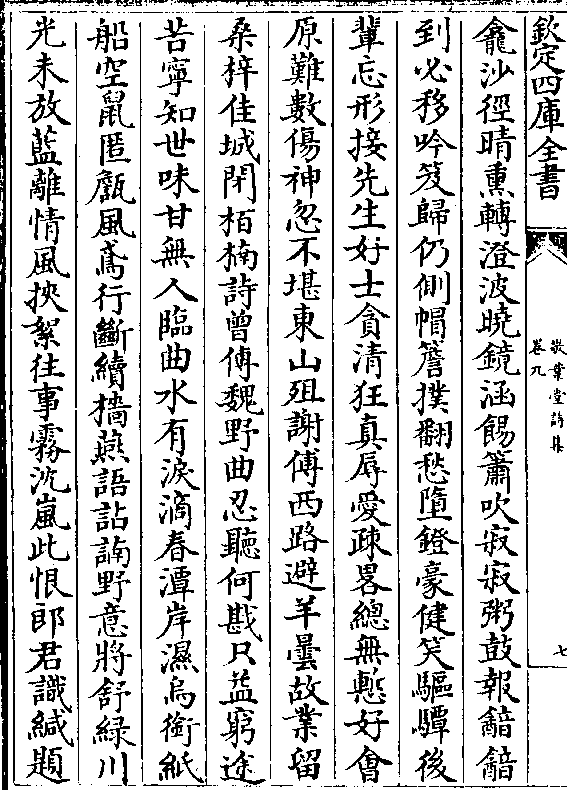 欽定四庫全書
敬業堂詩集
卷九
七
龕沙徑晴熏轉澄波曉鏡涵餳簫吹寂寂粥鼓報韽韽
到必移吟笈歸仍側帽簷撲翻愁墮鐙豪健笑驅驔後
輩忘形接先生好士貪清狂真辱愛疎畧總無慙好會
原難數傷神忽不堪東山殂謝傅西路避羊曇故業留
桑梓佳城閉栢楠詩曾傳魏野曲忍聽何戡只益窮途
苦寧知世味甘無人臨曲水有淚滴春潭岸濕烏銜紙
船空鼠匿甔風鳶行斷續檣燕語詀諵野意將舒緑川
光未放藍離情風挾絮往事霧沈嵐此恨郎君識緘題